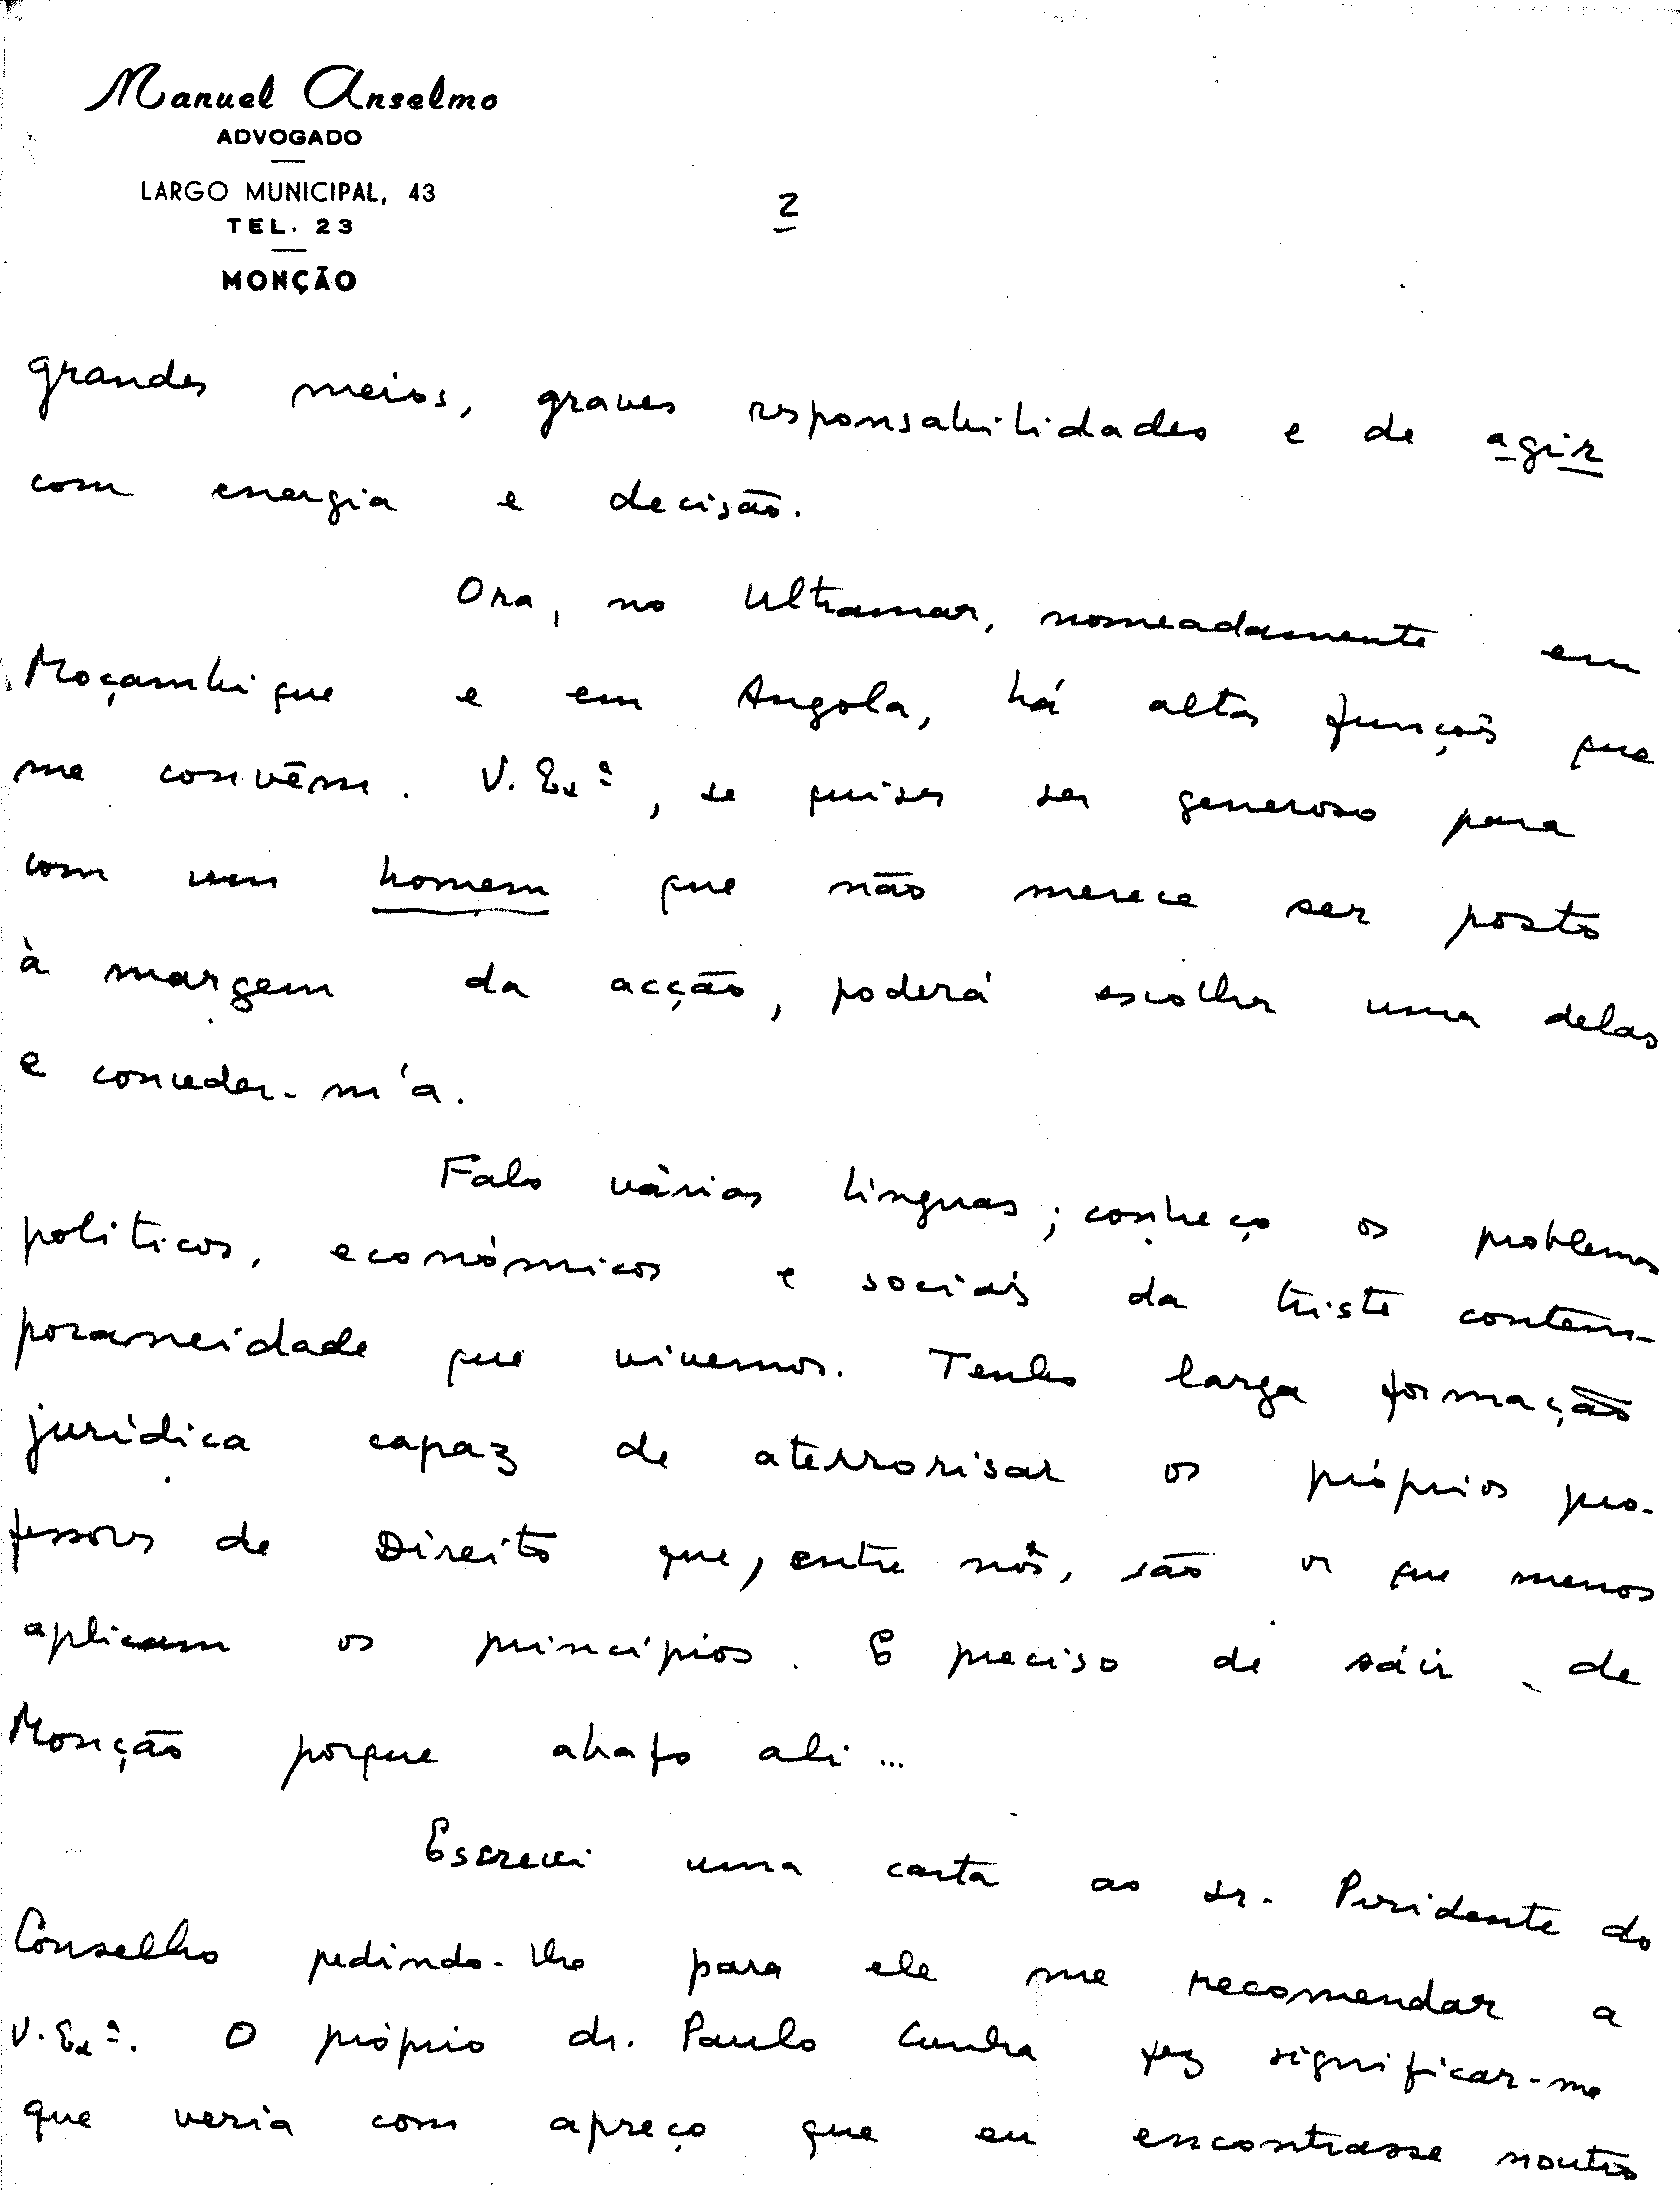 Manuel Anselmo
ADVOGADO
LARGO MUNICIPAL, 43
TEL. 23
MONÇÃO
2
grandes meios, graves responsabilidades e de agir
com energia e decisão.
Ora, no Ultramar, nomeadamente em
Moçambique e em Angola, há altas funções que
me convêm. V. Exª, se quiser ser generoso para
com um homem que não merece ser posto
à margem da acção, poderá escolher uma delas
e conceder-m'a.
Falo várias linguas; conheço os problemas
politicos, económicos e sociais da triste contem-
poraneidade que vivemos. Tenho larga formação
jurídica capaz de aterrorisar os próprios pro-
fessores de Direito que, entre nós, são os que menos
aplicam os princípios. E preciso de sáir de
Monção porque abafo ali...
Escrevi uma carta ao sr. Presidente do
Conselho pedindo-lhe para ele me recomendar a
V. Exª. O próprio dr. Paulo Cunha fez significar-me
que veria com apreço que eu encontrasse noutro